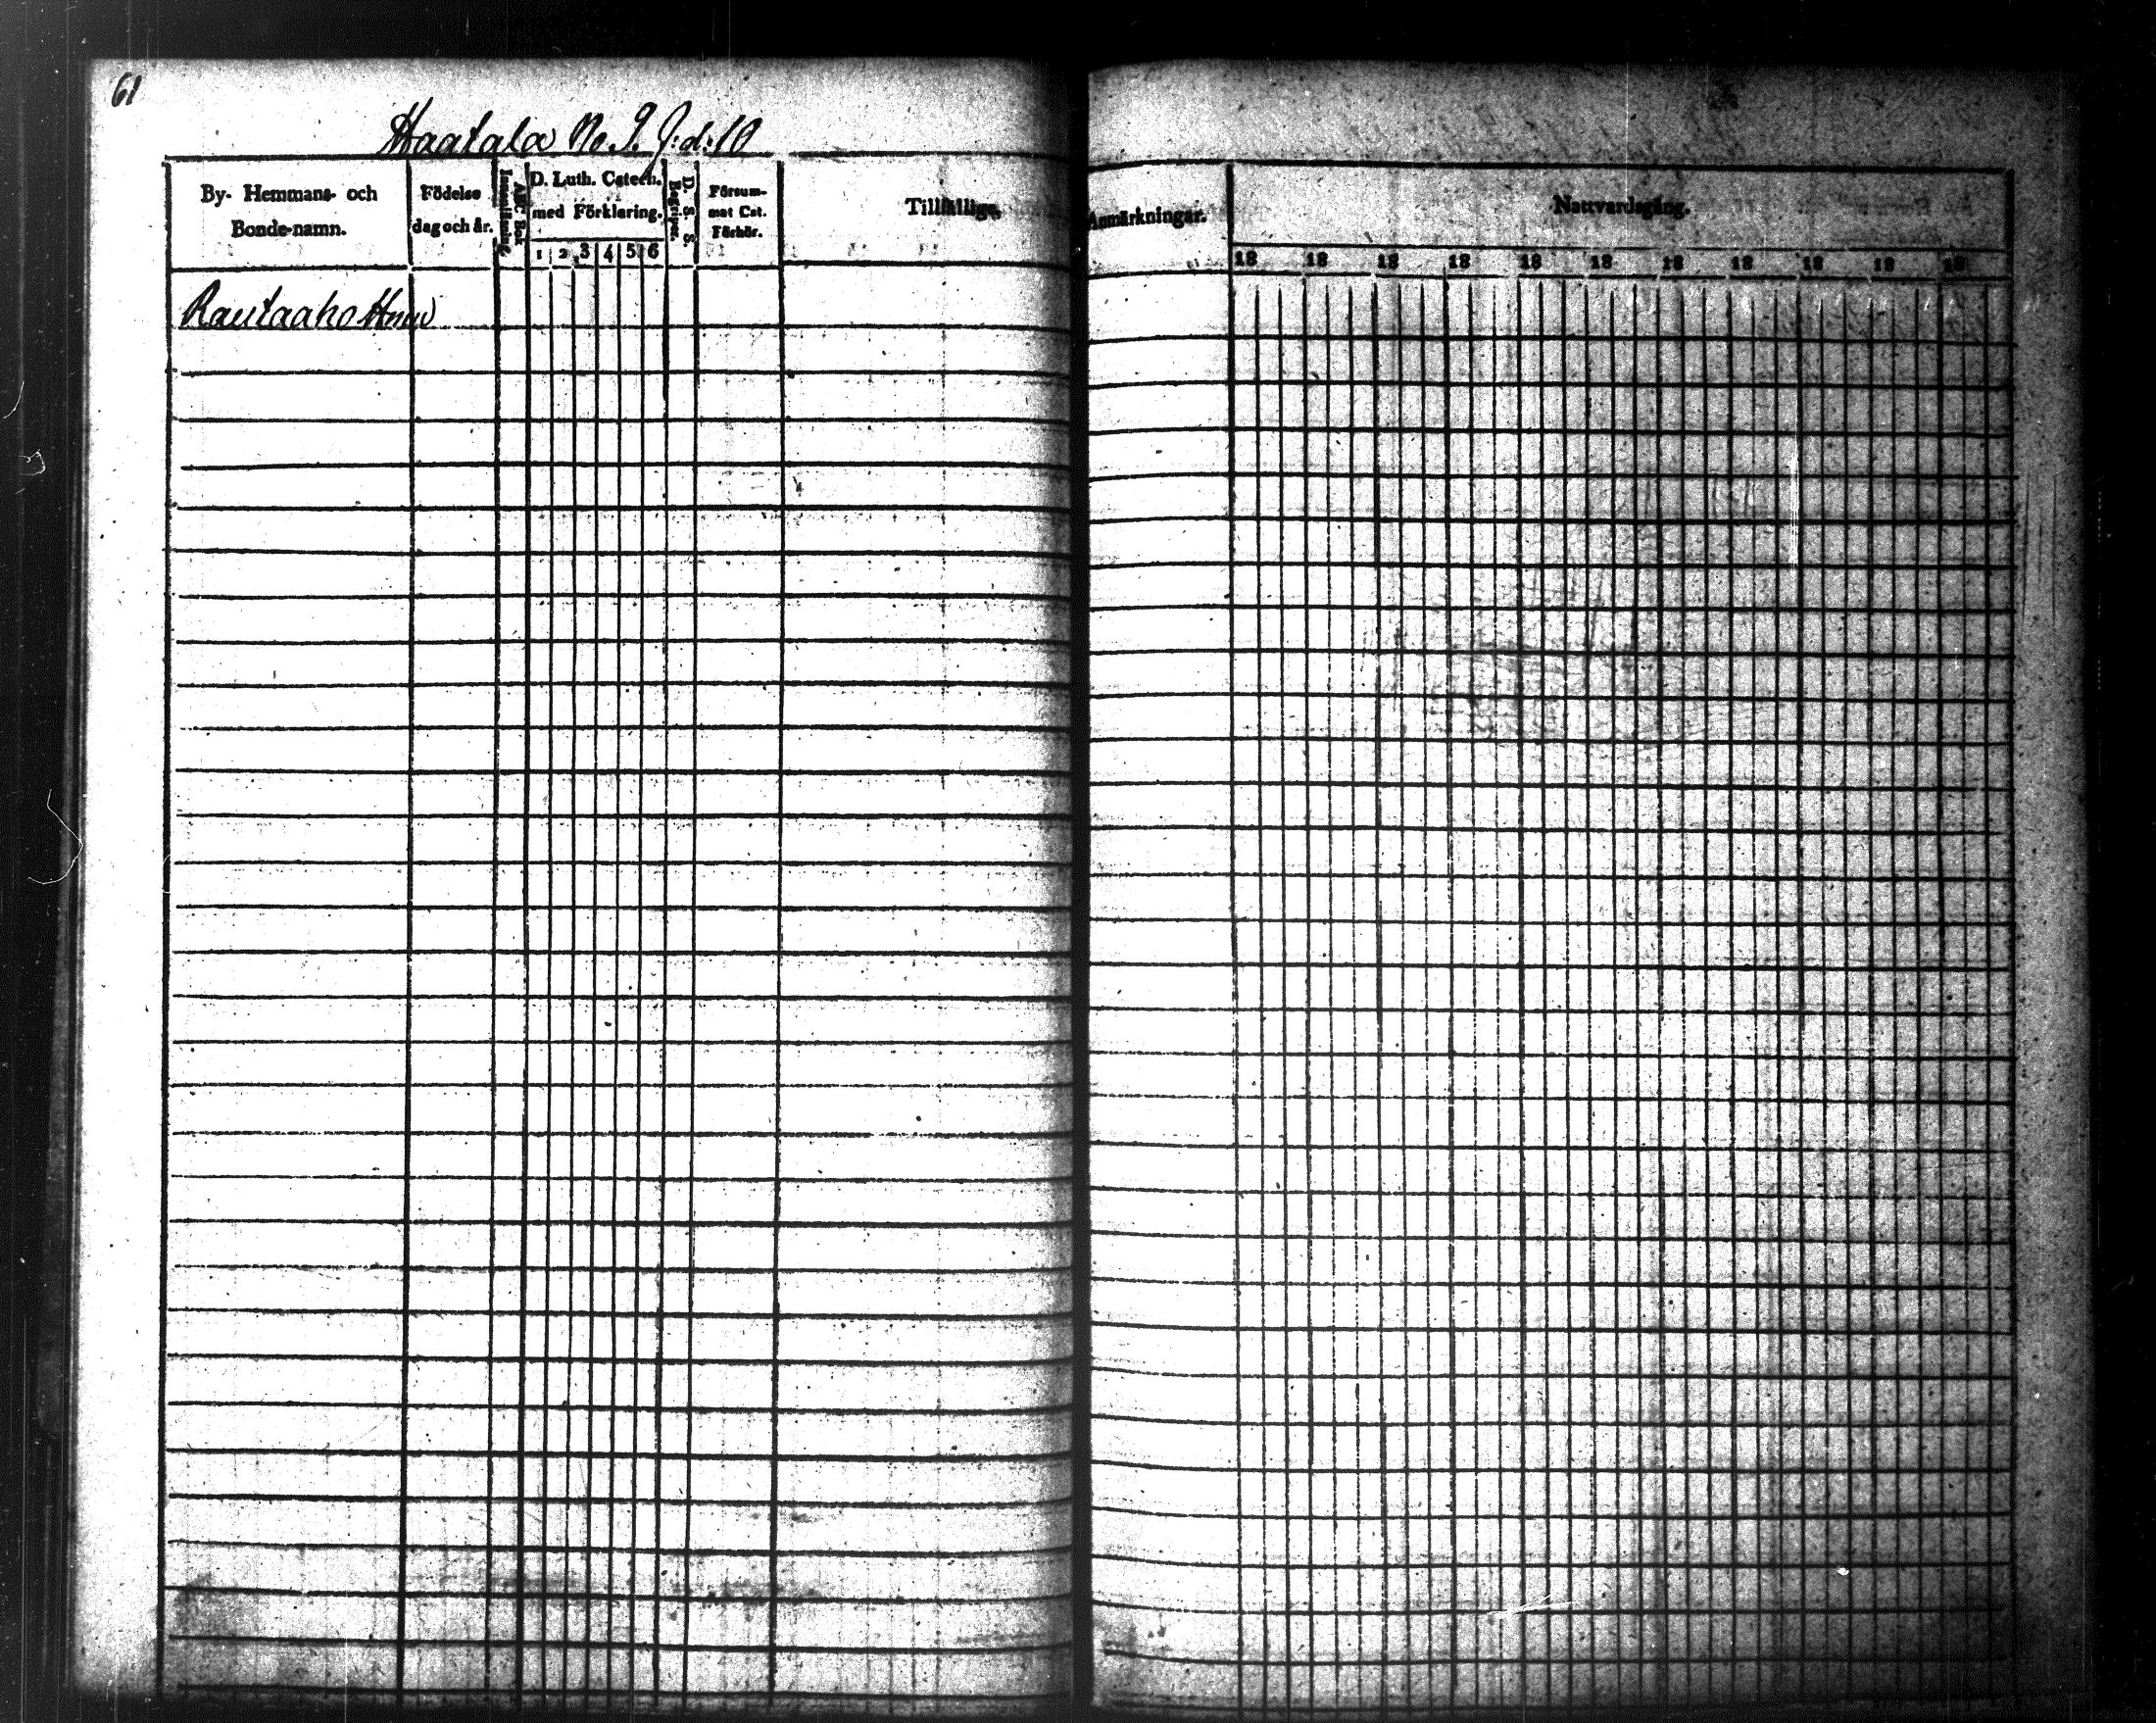 61
Haatala No. 9. J:d: 10
By- Hemmans- och Bonde-namn.
Födelse dag och år.
ABC Bok Innanläsning.
D. Luth. Catech. med Förklaring.
1 2 3 4 5 6
D. S. S. Begriper.
Försummat Cat. Förhör.
Tillfällige
Anmärkningar.
Nattvardsgång.
18 18 18 18 18 18 18 18 18 18 18
Rautaaho Hmn